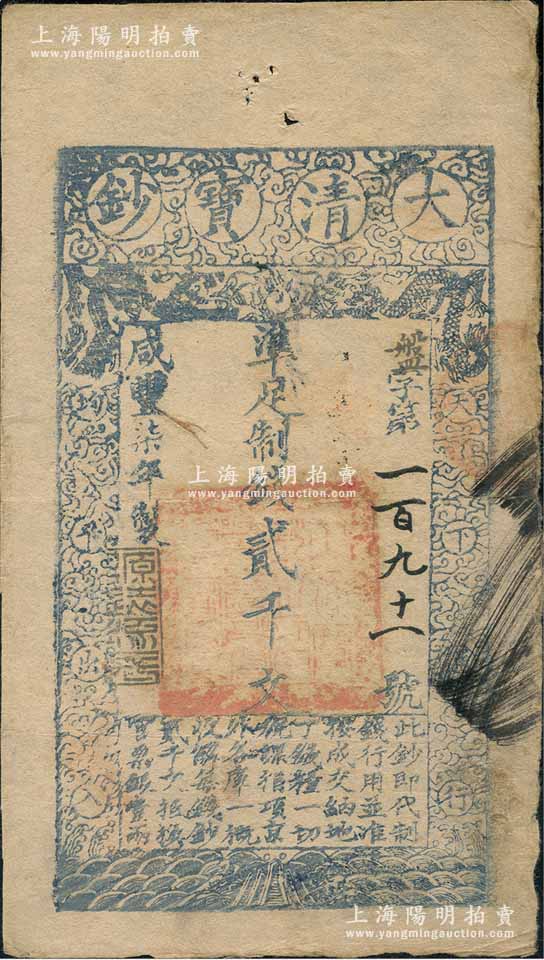 上海陽明拍賣
www.yangmingauction.com
大清寶鈔
盤字第一百九十一號
準足制錢貳千文
咸豐柒年製
天下
均平出入
此鈔即代制
錢行用並準
按成交納地
丁錢糧一切
稅課捐項京
外各庫一概
收解每錢鈔
貳千文抵換
官票銀壹兩
上海陽明拍賣
www.yangmingauction.com
上海陽明拍賣
www.yangmingauction.com